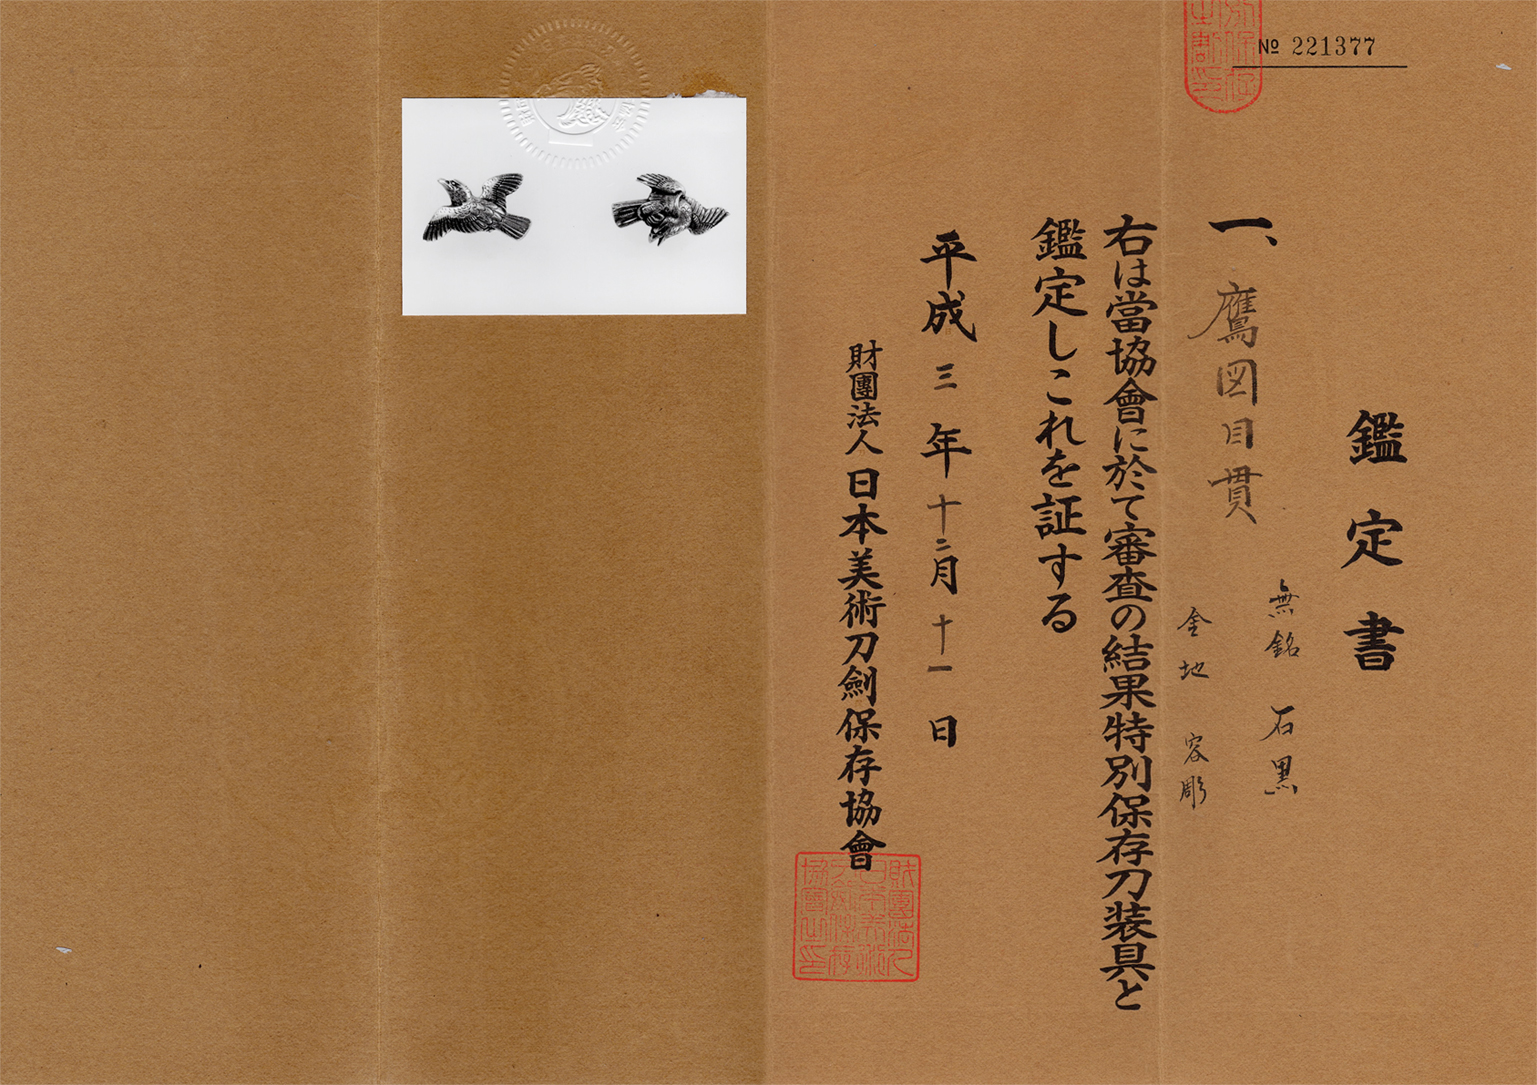 № 221377
鑑定書
一、鷹図目貫
無銘 石黒
金地 容彫
右は當協會に於て審査の結果特別保存刀装具と
鑑定しこれを証する
平成三年十二月十一日
財團法人日本美術刀劍保存協會
財團法人
日本美術
刀劍保存
協會之印